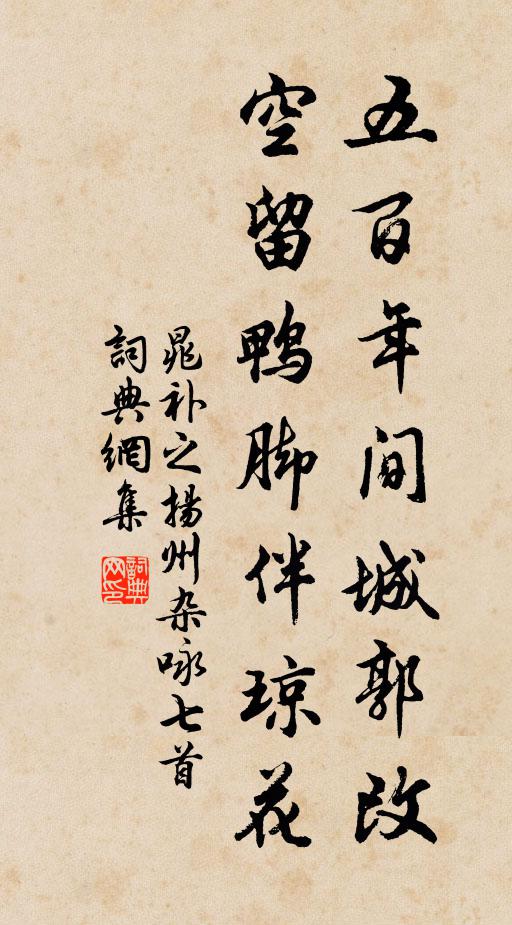 五百年间城郭改
空留鸭脚伴琼花
晁补之扬州杂咏七首
词典網集
詞典
网印